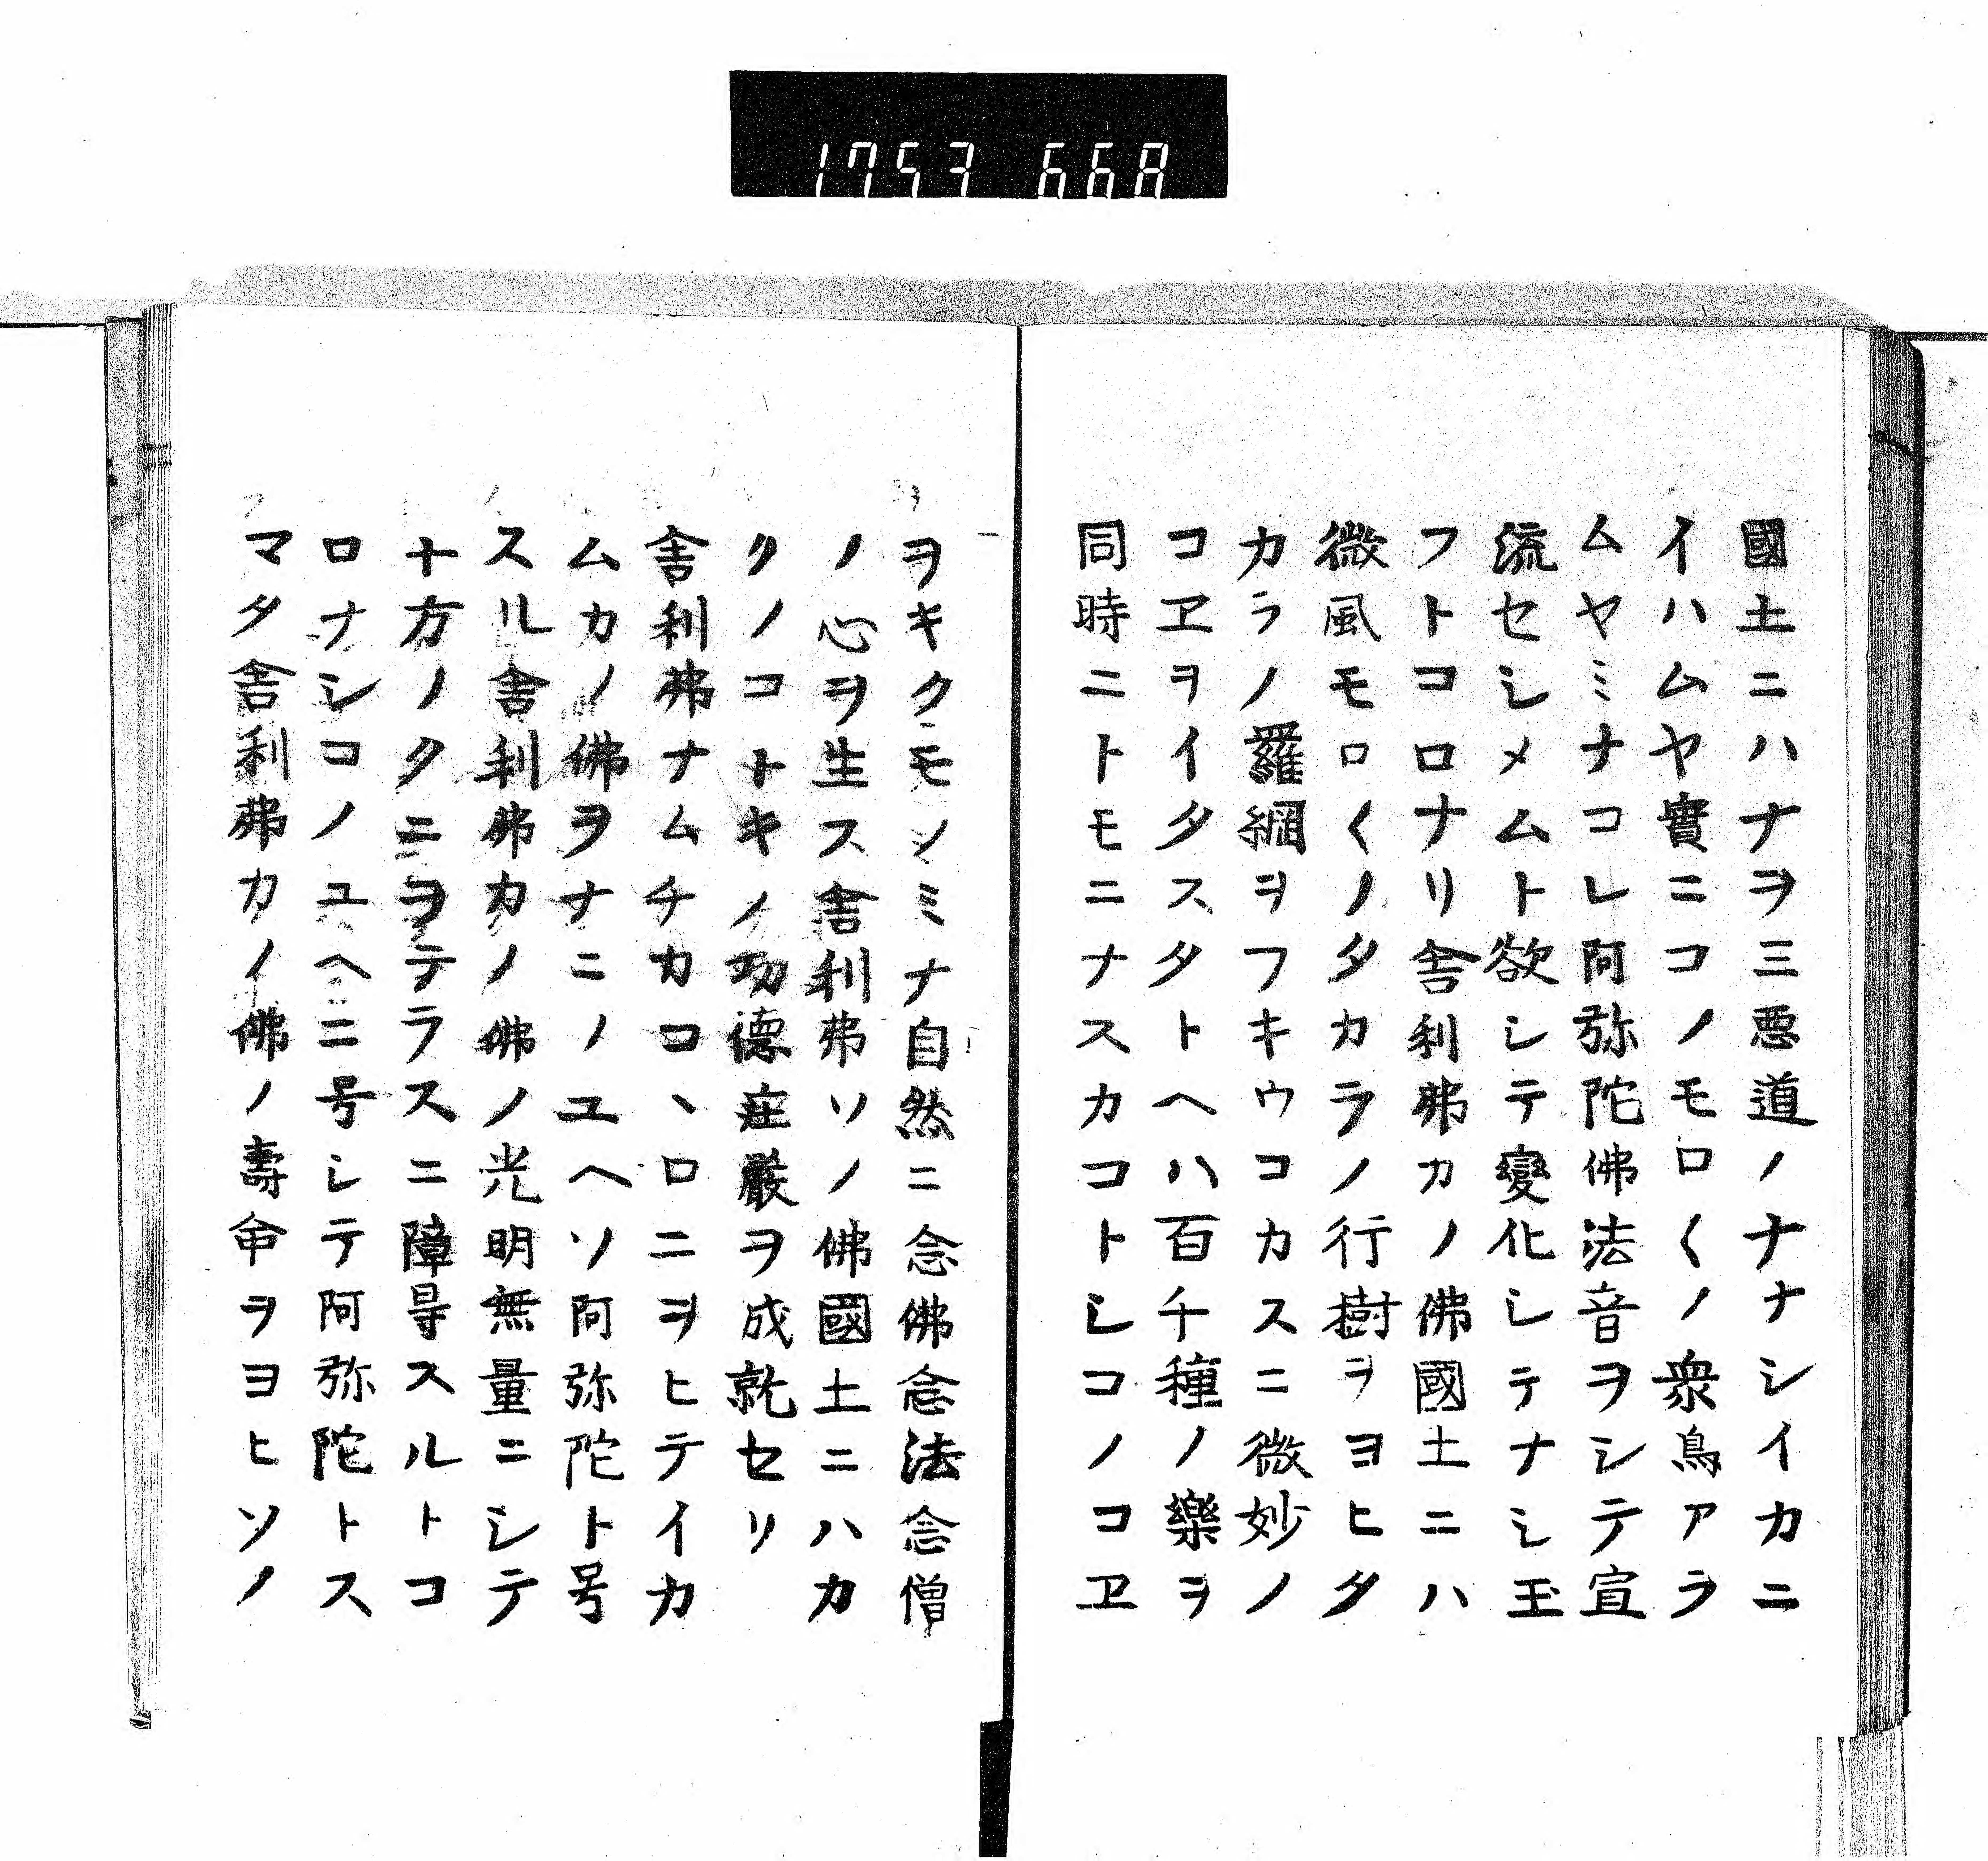 1753 668
國土ニハナヲ三悪道ノナナシイカニ
イハムヤ實ニコノモロ〱ノ衆鳥アラ
ムヤミナコレ阿弥陀佛法音ヲシテ宣
流セシメムト欲シテ變化シテナシ玉
フトコロナリ舎利弗カノ佛國土ニハ
微風モロ〱ノタカラノ行樹ヲヨヒタ
カラノ羅網ヲフキウコカスニ微妙ノ
コヱヲイタスタトヘハ百千種ノ樂ヲ
同時ニトモニナスカコトシコノコヱ
ヲキクモノミナ自然ニ念佛念法念僧
ノ心ヲ生ス舎利弗ソノ佛國土ニハカ
クノコトキノ功德庄嚴ヲ成就セリ
舎利弗ナムチカコヽロニヲヒテイカ
ムカノ佛ヲナニノユヘソ阿弥陀ト号
スル舎利弗カノ佛ノ光明無量ニシテ
十方ノクニヲテラスニ障㝵スルトコ
ロナシコノユヘニ号シテ阿弥陀トス
マタ舎利弗カノ佛ノ壽命ヲヨヒソノ